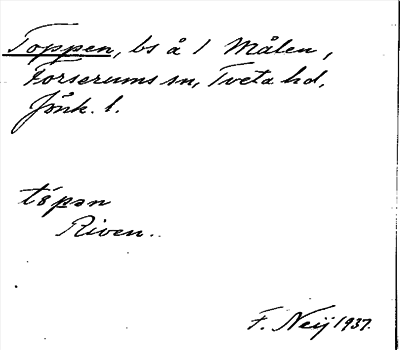 Toppen, bs å 1 Målen,
Forserums sn, Tveta hd,
Jönk. l.
tópən
Riven.
F. Neij 1937.